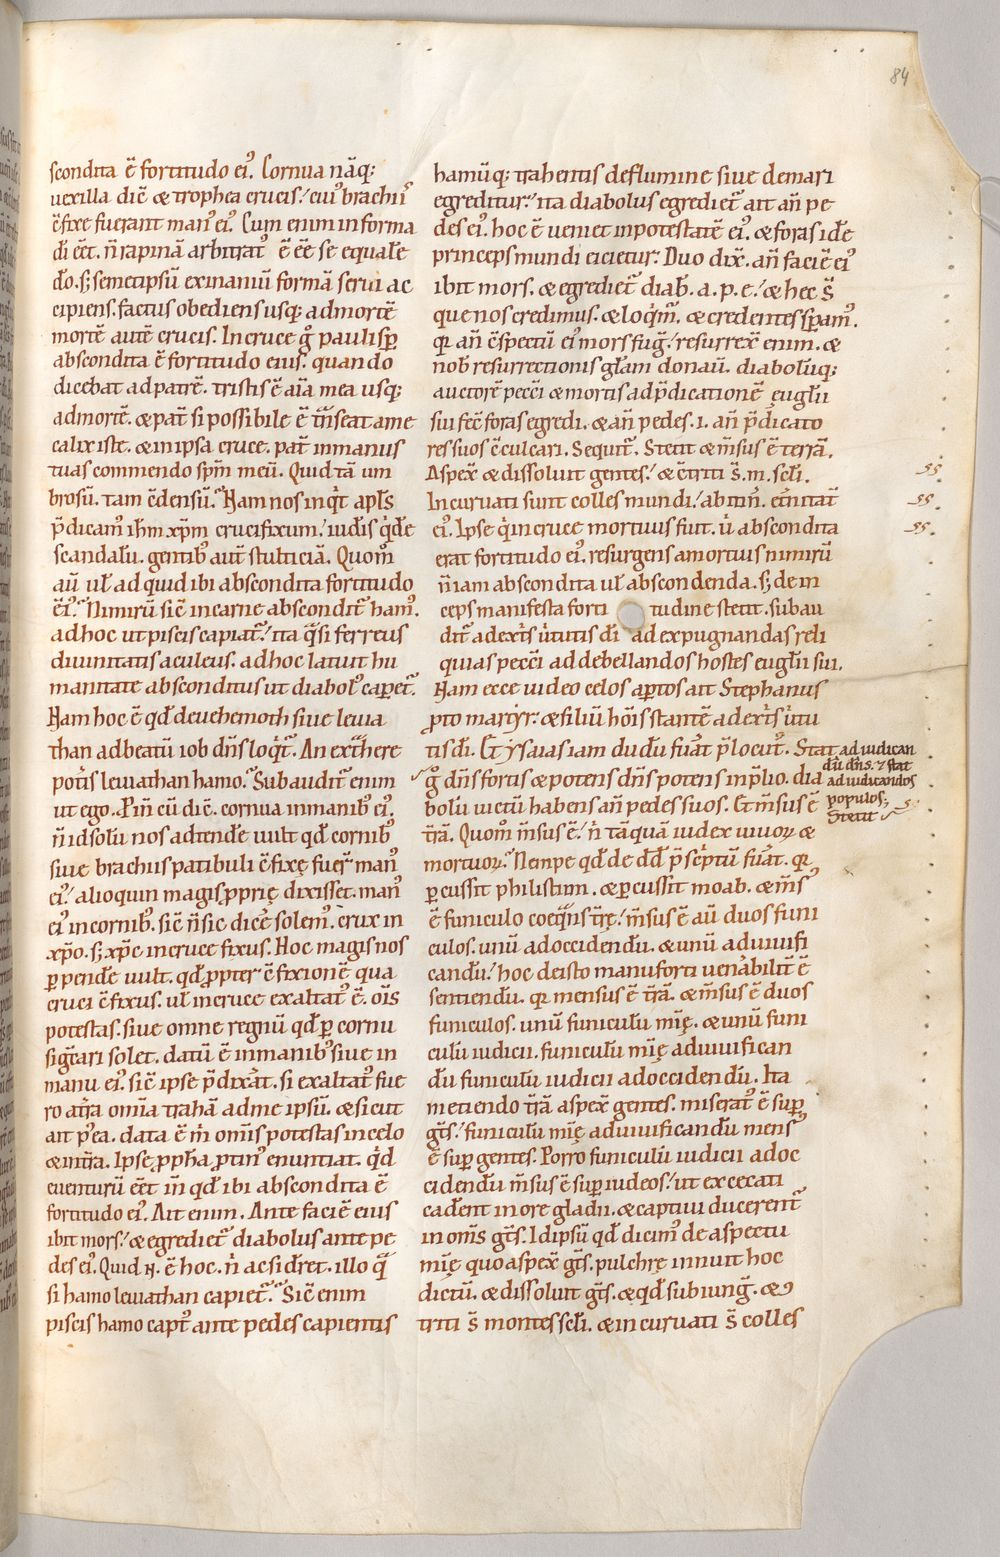 84
scondita ē fortitudo eiꝰ. Cornua nāq;
uexilla dic̄ & trophea crucis. cuiꝰ brachiiꝰ
c̄fixe fuerant manꝰ eiꝰ. Cum enim in forma
di eēt. n̄ rapinā arbitratꝰ ē eē se equale
do. s; semetipsū exinaniū formā serui ac
cipiens. factus obediens usq; ad mortē
mortē autē crucis. In cruce ḡ paulisp̱
abscondita ē fortitudo eius. quando
dicebat ad patrē. tristis ē aīa mea usq;
ad mortē. & pat̄ si possibile ē trānseat a me
calix iste. & in ipsa cruce. pat̄ in manus
tuas commendo sp̄m meū. Quid tā um
brosū. tam c̄densū. Nam nos inqͥt apl̄s
p̄dicamꝰ ih̄m xp̄m crucifixum. iudīs qͥde
scandalū. gentibꝰ aut̄ stulticiā. Quom̄
aū ul̄ ad quid ibi abscondita fortitudo
eiꝰ. Nimirū sic̄ in carne abscondit̄ hamꝰ.
ad hoc ut piscis capiat̄. ita q̄si ferreus
diuinitatis aculeus. ad hoc latuit hu
manitate absconditus ut diabolꝰ caperet̄.
Nam hoc ē qd̄ de uehemoth siue leuia
than ad beatū iob dn̄s loqͥt̄. An ext̄here
potͥs leuiathan hamo. Subaudit̄ enim
ut ego. Pin̄ cū dic̄. cornua in manibꝰ eiꝰ.
n̄ id solū nos adtende uult qd̄ cornibꝰ
siue brachiis patibuli c̄fixę fuer̄ manꝰ
eiꝰ. alioquin magis ꝓprię dixisset. manꝰ
eiꝰ in cornibꝰ. sic̄ n̄ sic dic̄e solemꝰ. crux in
xp̄o. s; xp̄c in cruce fixus. Hoc magis nos
ꝑpende uult. qd̄ ꝓpter c̄fixionē qua
cruci c̄fixus. ul̄ in cruce exaltatꝰ ē. om̄s
potestas. siue omne regnū qd̄ ꝑ cornu
sig̅cari solet. datū ē in manibꝰ siue in
manu eiꝰ. sic̄ ipse p̄dixāt. si exaltatꝰ fue
ro at̄ra om̄ia trahā ad me ipsū. & sicut
ait p̄ea. data ē m̄ om̄is potestas in celo
& int̄ra. Ipse ꝓpha ꝓtinꝰ enuntiat. qͥd
euenturū eēt in̄ qd̄ ibi abscondita ē
fortitudo eiꝰ. Ait enim. Ante faciē eius
ibit mors. & egrediet̄ diabolus ante pe
des eiꝰ. Quid n̄. ē hoc. n̄ ac si dr̄et. illo q̄
si hamo leuiathan capiet̄. Sic̄ enim
piscis hamo captꝰ ante pedes capientis
hamūq; trahentis de flumine siue de mari
egreditur. ita diabolus egrediet̄ ait an̄ pe
des eiꝰ. hoc ē ueniet in potestatē eiꝰ. & foras ide
princeps mundi eicietur. Duo dix̄. an̄ faciē eiꝰ
ibit mors. & egrediet̄ diab̄. a. p. e. & hec s̄
que nos credimus. & loqͥm̄. & credentes speramꝰ.
qr̄ an̄ c̄spectū eiꝰ mors fug̅. resurrex̄ enim. &
nob̄ resurrectionis glām donauī. diabolūq;
auctorē peccī & mortis ad p̄dicationē euglii
sui fec̄ foras egredi. & an̄ pedes. i. an̄ p̄dicato
res suos c̄culcari. Sequit̄. Stetit & m̄sus ē terrā.
Aspex̄ & dissoluit gentes. & c̄triti s̄. m. sc̄li.
Incuruati sunt colles mundi. ab itin̄. et̄nitat̄
eiꝰ. Ipse qͥ in cruce mortuus fuit. u̇ abscondita
erat fortitudo eiꝰ. resurgens a mortuis nimirū
n̄ iam abscondita ul̄ abscondenda. s; dein
ceps manifesta forti tudine stetit. subau
dit̄ a dext̄s uͥtutis di ad expugnandas reli
quias peccī ad debellandos hostes euglii sui.
Nam ecce uideo celos aꝑtos ait Stephanus
ꝓto martyr. & filiū hōis stantē a dext̄s uͥtu
tis dī. Et ysaias iam dudū fuāt p̄locutꝰ. Stat
ḡ dn̄s fortis & potens dn̄s potens in p̄lio. dia
bolū uictū habens an̄ pedes suos. Et m̄sus ē
t̄rā. Quom̄ m̄sus ē. n̄ tāquā iudex uiuoꝝ &
mortuoꝝ. Nempe qd̄ de dd̄ p̄ sc̄ptū fuāt. qr̄
ꝑcussit philistiim. & ꝑcussit moab. & m̄sꝰ
ē funiculo coeqͣns t̄rę. m̄sus ē aū duos funi
culos. unū ad occidendū. & unū ad uiuifi
candū. hoc de isto manuforti uenābilit̄ ē
sentiendū. qr̄ mensus ē t̄rā. & m̄sus ē duos
funiculos. unū funiculū mīę. & unū funi
culū iudicii. funiculū mīę ad uiuifican
dū funiculū iudicii ad occidendū. Ita
metiendo t̄rā aspex̄ gentes. miseratꝰ ē suꝑ
gt̄s. funiculū mīę ad uiuificandū mensꝰ
ē suꝑ gentes. Porro funiculū iudicii ad oc
cidendū m̄sus ē suꝑ iudeos. ut excecati
cadent in ore gladii. & captiui ducerent̄
in om̄s gt̄s. Idipsū qd̄ dicimꝰ de aspectu
mīę quo aspex̄ gt̄s. pulchrę innuit hoc
dictū. & dissoluit gt̄s. & qd̄ subiung̅. & ꝯ
triti s̄ montes sc̄li. & incuruati s̄ colles
ad iudican
dū dn̄s. & stat
ad iudicandos
populos;
Stetit